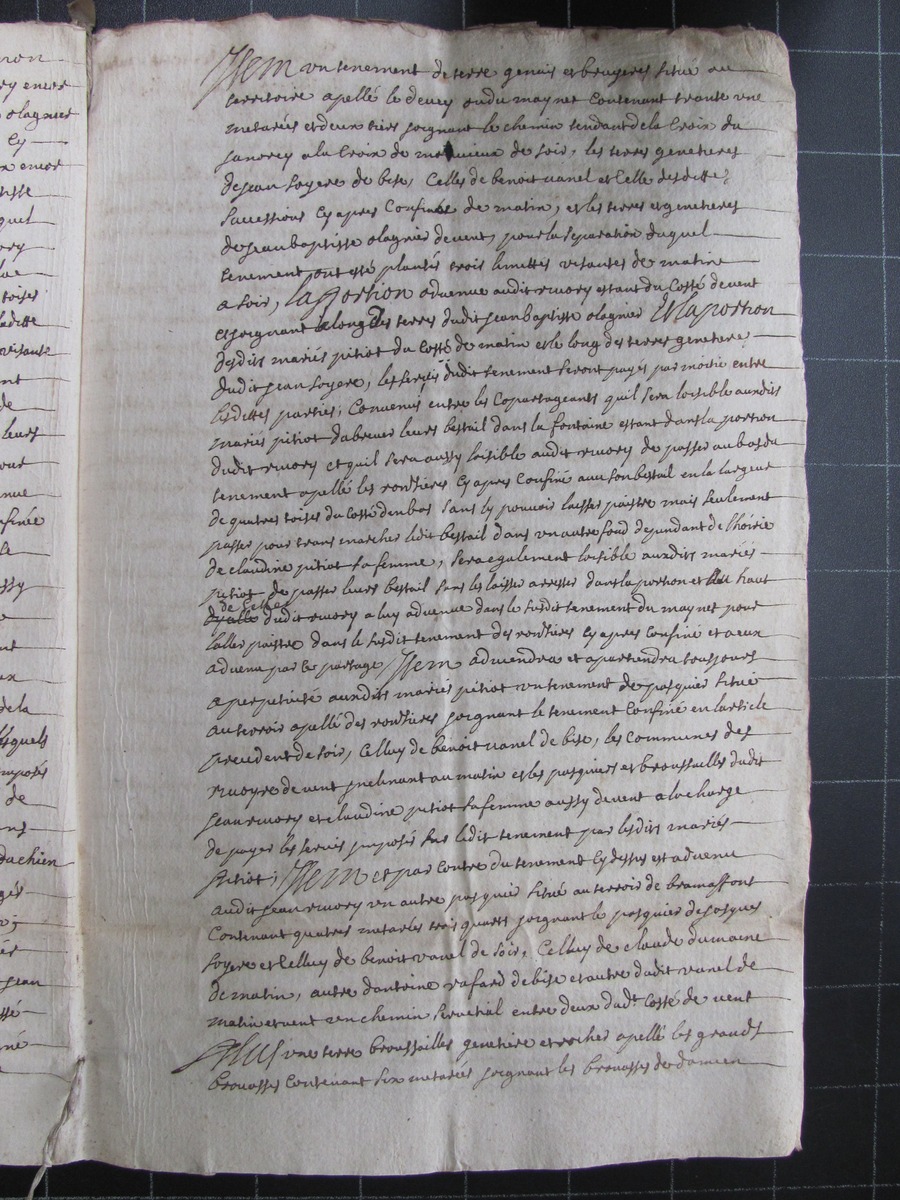 non
ry encor
olagnier
Cy
x encor
tisse
quel
ory
toises
ladette
visante
nt
de
leurs
nue
nfinée
ssy
nt
dela
lesquels
imposés
de
dachien
gés
Jean
né
Item un tenement de terre genais et bruyeres situé au
territoire apellé le devey ou du maynet contenant trante une
metarées et deux tiers joignant le chemin tendant de la Croix du
janorey a la Croix de de soir, les terres genetieres
de jean soyere de bise, Celles de benoit vanel et Celle desdittes
successions Cy apres Confinée de matin, et les terres et genetieres
de jean baptisse olagnier de vent, pour la separation duquel
tenement ont esté plantés trois limittes visantes de matin
a soir, la portion advenue audit rivory estant du Costé de vent
et joignant le long des terres dudit jean baptiste olagnier Et la portion
desdits mariés pitiot du Costé de matin et le long des terres genetieres
dudit jean soyere, les servis dudit tenement seront payés par moitié entre
lesdittes parties, Convenu entre les Copartageants quil sera loisible auxdits
mariés pitiot dabreuver leurs bestail dans la fontaine estant dans la portion
dudit rivory et quil sera aussy loisible audit rivory de passer au bas du
tenement apellé les rontieres Cy apres Confiné avec son bestail en la largeur
de quatres toises du Costé den bas sans ly pouvoir laisser paistre mais seulement
passer pour transmarcher ledit bestail dans un autre fond dependant de lhoirie
de claudine pitiot sa femme, sera egalement loisible auxdits mariés
pitiot de passer leurs bestail sans les laisser arrester dans la portion et au haut
de Celle
dudit rivory a luy advenue dans le susdit tenement du maynet pour
laller paistre dans le susdit tenement des rontieres Cy apres Confiné et a eux
advenu par Ce partage Item adviendra et apartiendra tousjours
a perpetuité auxdits mariés pitiot un tenement de pasquier situé
au terroir apellé des rontieres joignant le tenement Confiné en larticle
precedent de soir, Celluy de benoit vanel de bise, les communes des
rivoyre de vent jnclinant au matin et les pasquiers et broussailles dudit
jean rivory et claudine pitiot sa femme aussy de vent a la charge
de payer les servis jmposés sur ledit tenement par lesdits mariés
pitiot; Item et par contre du tenement Cy dessus est advenu
audit jean rivory un autre pasquier situé au terroir de bramassont
Contenant quatres metarées trois quarts joignant le pasquier de jaques
soyere et Celluy de benoit vanel de soir, Celluy de claude dumaine
de matin, autre dantoine rafard de bise et autre dudit vanel de
matin et vent un chemin servitial entre deux dudt Costé de vent
Plus une terre broussailles genetiere et rocher apellé les grands
brouasses Contenant six metarées joignant les brouasses de damien